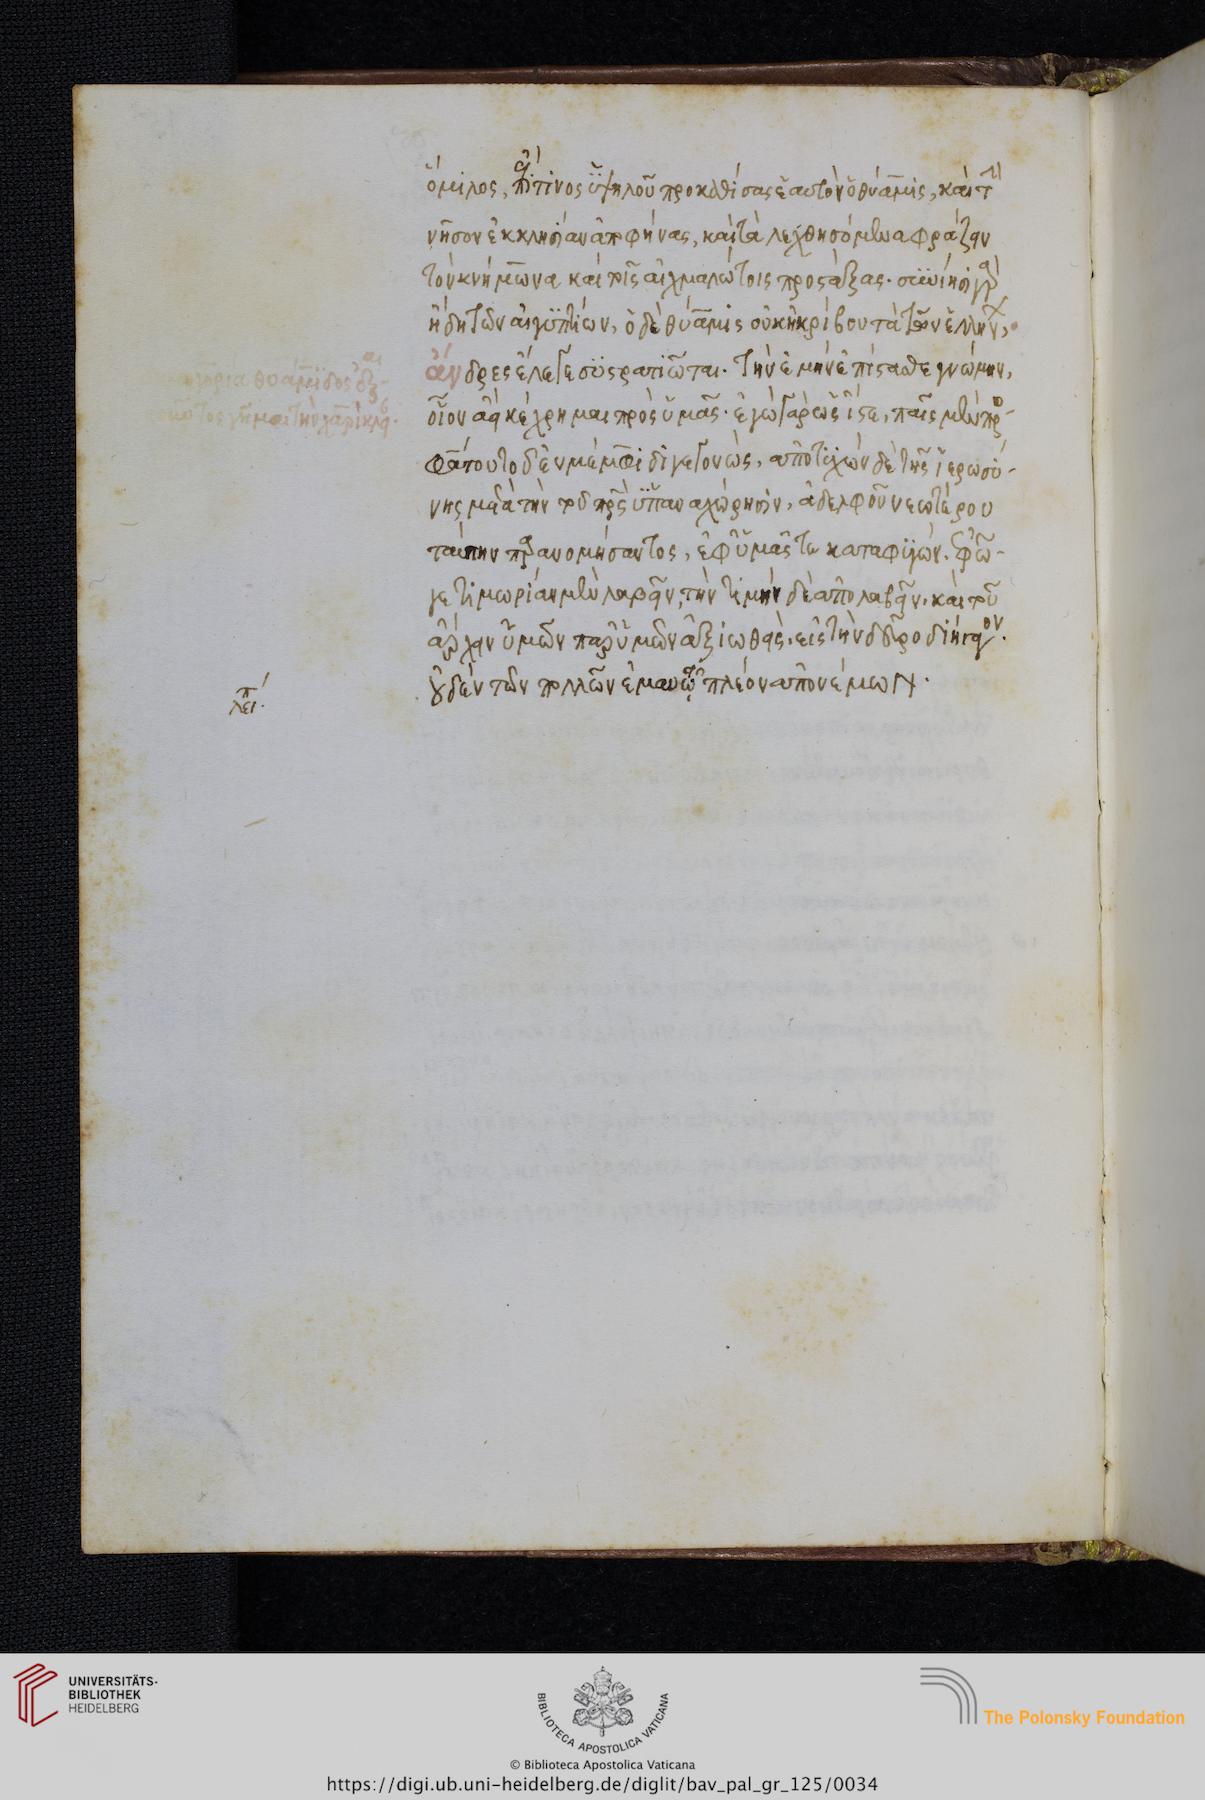 ὅμιλος, ἐπί τινος ὑψηλοῦ προκαθίσας ἑαυτὸν ὁ θύαμις, καὶ τὴν
νῆσον ἐκκλησίαν ἀποφήνας, καὶ τὰ λεχθησόμενα φράζειν
τὸν κνήμωνα καὶ τοῖς αἰχμαλώτοις προστάξας· συνίησι γὰρ
ἤδη τῶν αἰγυπτίων, ὁ δὲ θύαμις οὐκ ἠκρίβου τὰ τῶν ἑλλήνων,
ἄνδρες ἔλεγε συστρατιῶται· τὴν ἐμὴν ἐπίστασθε γνώμην,
οἷον ἀεὶ κέχρημαι πρὸς ὑμᾶς· ἐγὼ γὰρ ὡς ἴστε, παῖς μὲν προ-
φήτου τοῦ ἐν μέμφει γεγονὼς, ἀποτυχὼν δὲ τῆς ἱερωσύ-
νης μετὰ τὴν τοῦ πατρὸς ὑπαναχώρησιν, ἀδελφοῦ νεωτέρου
ταύτην παρανομήσαντος, ἐφ' ὑμᾶς τε καταφυγών. ἐφ' ᾧ-
γε τιμωρίαν μὲν λαβεῖν, τὴν τιμὴν δὲ ἀπολαβεῖν. καὶ τοῦ
ἄρχειν ὑμῶν παρ' ὑμῶν ἀξιωθεὶς. εἰς τὴν δεῦρο διήγαγον.
οὐδὲν τῶν πολλῶν ἐμαυτῷ πλέον ἀπονέμων.
θυάμιδος
γῆμαι τὴν χαρίκλει.
λείπει.
UNIVERSITÄTS-
BIBLIOTHEK
HEIDELBERG
BIBLIOTECA APOSTOLICA VATICANA
The Polonsky Foundation
© Biblioteca Apostolica Vaticana
https://digi.ub.uni-heidelberg.de/diglit/bav_pal_gr_125/0034